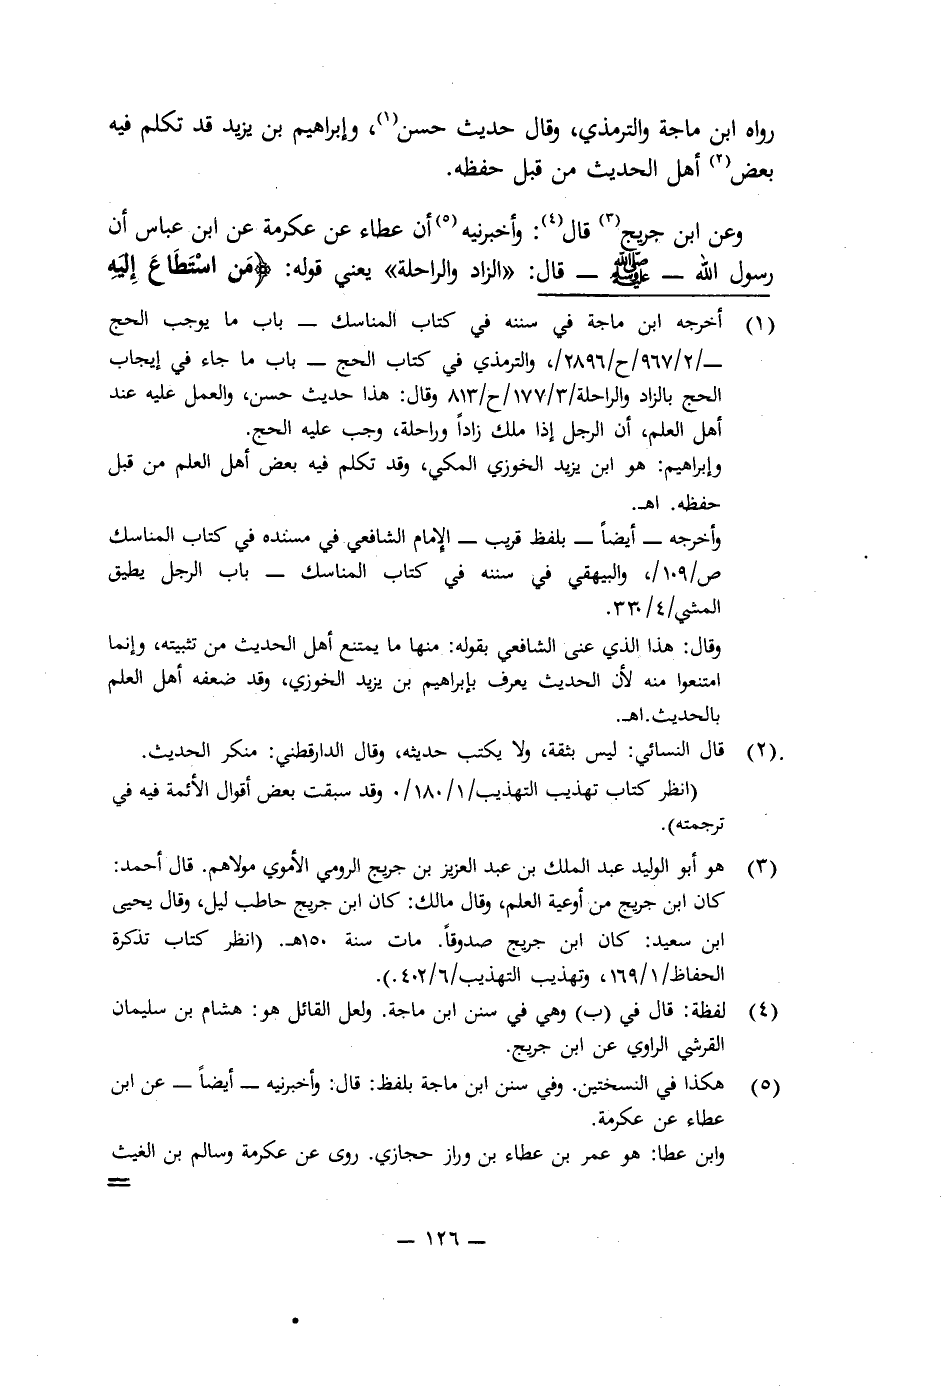 رواه ابن ماجة والترمذي، وقال حديث حسن(١)، وإبراهيم بن يزيد قد تكلم فيه
بعض(٢) أهل الحديث من قبل حفظه.
وعن ابن جريج(٣) قال(٤): وأخبرنيه(٥) أن عطاء عن عكرمة عن ابن عباس أن
رسول الله — ﷺ — قال: «الزاد والراحلة» يعني قوله: ﴿مَن اسْتَطَاعَ إِلَيْهِ
(١) أخرجه ابن ماجة في سننه في كتاب المناسك — باب ما يوجب الحج
—/٩٦٧/٢/ح/٢٨٩٦/، والترمذي في كتاب الحج — باب ما جاء في إيجاب
الحج بالزاد والراحلة/١٧٧/٣/ح/٨١٣ وقال: هذا حديث حسن، والعمل عليه عند
أهل العلم، أن الرجل إذا ملك زاداً وراحلة، وجب عليه الحج.
وإبراهيم: هو ابن يزيد الخوزي المكي، وقد تكلم فيه بعض أهل العلم من قبل
حفظه. اهـ.
وأخرجه — أيضاً — بلفظ قريب — الإمام الشافعي في مسنده في كتاب المناسك
ص/١٠٩/، والبيهقي في سننه في كتاب المناسك — باب الرجل يطيق
المشي/٤/٣٣٠.
وقال: هذا الذي عنى الشافعي بقوله: منها ما يمتنع أهل الحديث من تثبيته، وإنما
امتنعوا منه لأن الحديث يعرف بإبراهيم بن يزيد الخوزي، وقد ضعفه أهل العلم
بالحديث.اهـ.
(٢). قال النسائي: ليس بثقة، ولا يكتب حديثه، وقال الدارقطني: منكر الحديث.
(انظر كتاب تهذيب التهذيب/١/١٨٠/٠ وقد سبقت بعض أقوال الأئمة فيه في
ترجمته).
(٣) هو أبو الوليد عبد الملك بن عبد العزيز بن جريج الرومي الأموي مولاهم. قال أحمد:
كان ابن جريج من أوعية العلم، وقال مالك: كان ابن جريج حاطب ليل، وقال يحيى
ابن سعيد: كان ابن جريج صدوقاً. مات سنة ١٥٠هـ. (انظر كتاب تذكرة
الحفاظ/١/١٦٩، وتهذيب التهذيب/٤٠٢/٦.).
(٤) لفظة: قال في (ب) وهي في سنن ابن ماجة. ولعل القائل هو: هشام بن سليمان
القرشي الراوي عن ابن جريج.
(٥) هكذا في النسختين. وفي سنن ابن ماجة بلفظ: قال: وأخبرنيه — أيضاً — عن ابن
عطاء عن عكرمة.
وابن عطا: هو عمر بن عطاء بن وراز حجازي. روى عن عكرمة وسالم بن الغيث
=
— ١٢٦ —